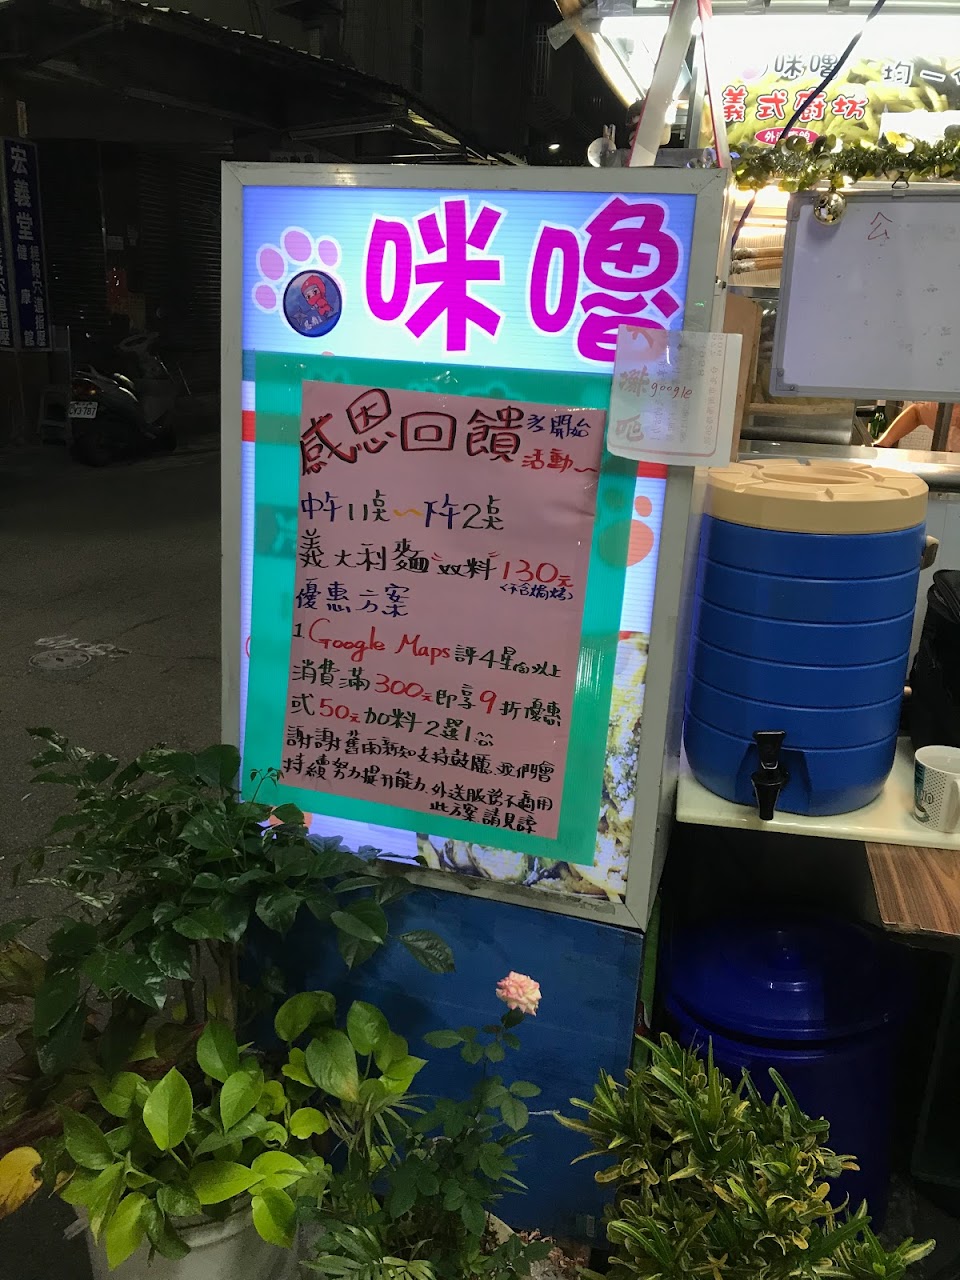 咪嚕
感恩回饋
活動~
中午11桌~下午2桌
義大利麵"双料"130元
<不含焗烤>
優惠方案
1 Google Maps評4星(含)以上
消費滿300元即享9折優惠
或50元加料2選1
謝謝舊雨新知支持鼓勵、我們會
持續努力提升能力.外送服營不適用
此方案請見諒
google
咪嚕
均一
義式廚坊
宏義堂
經絡穴道指壓
健康館
CV3 787